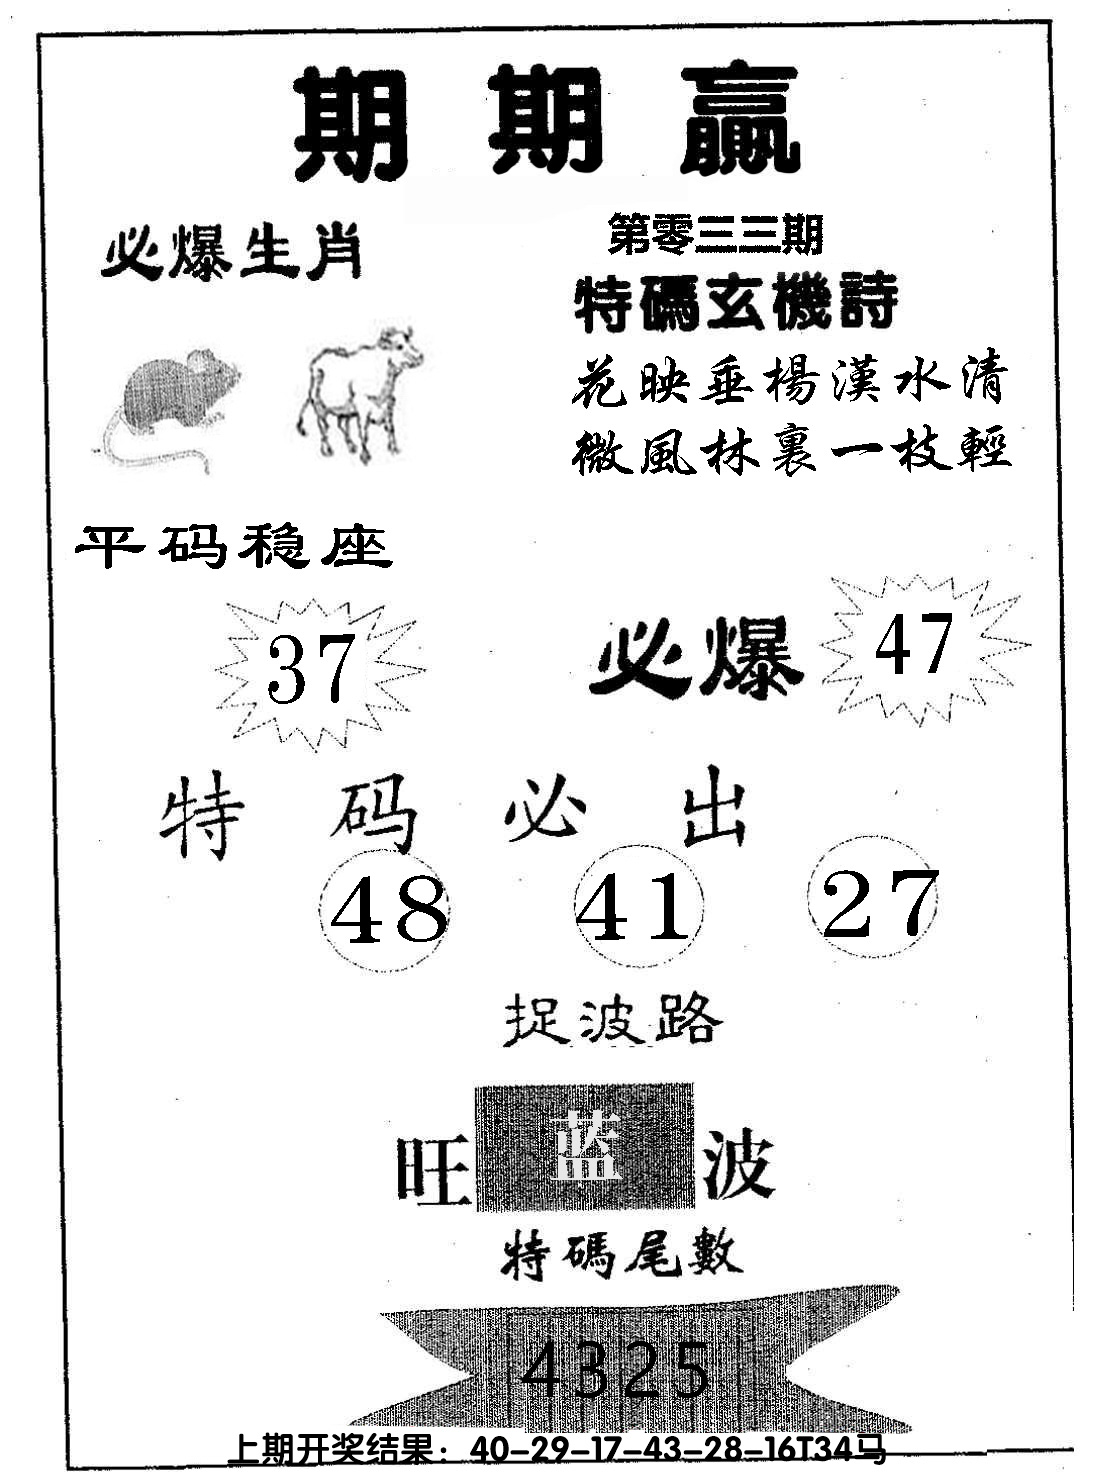 期期赢
必爆生肖
第零三三期
特碼玄機詩
花映垂楊漢水清
微風林裏一枝輕
平码稳座
37
必爆 47
特码必出
48 41 27
捉波路
旺蓝波
特碼尾數
4325
上期开奖结果：40-29-17-43-28-16T34马